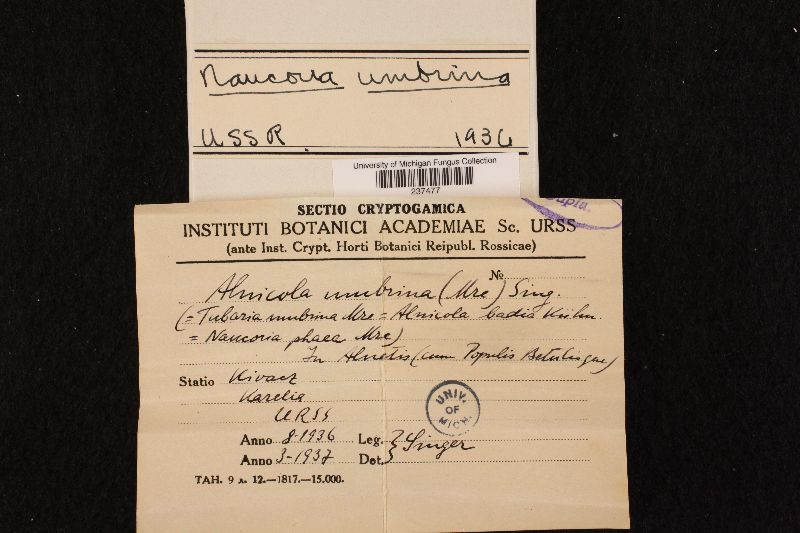 Naucoria umbrina
USSR 1936
University of Michigan Fungus Collection
237477
Dupla.
SECTIO CRYPTOGAMICA
INSTITUTI BOTANICI ACADEMIAE Sc. URSS
(ante Inst. Crypt. Horti Botanici Reipubl. Rossicae)
№
Alnicola umbrina (Mre) Sing.
(= Tubaria umbrina Mre = Alnicola badia Kühn.
= Naucoria phaea Mre)
In Alnetis (cum Populis Betulisque)
Statio Kivacz
Karelia
URSS
UNIV. OF MICH.
Anno 8-1936 Leg. } Singer
Anno 3-1937 Det.
TAH. 9 x. 12.—1817.—15.000.